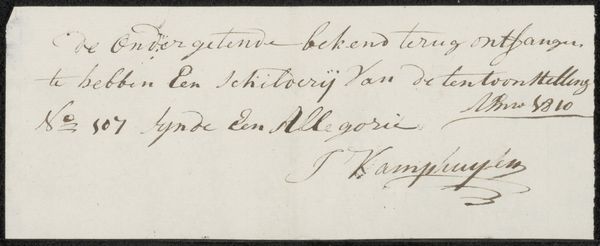 De Ondergetende bekend terug ontfangen
te hebben Een Schilderij Van de tentoonstelling
No 107 Synde Een Allegorie Ano 1810
J Kamphuysen